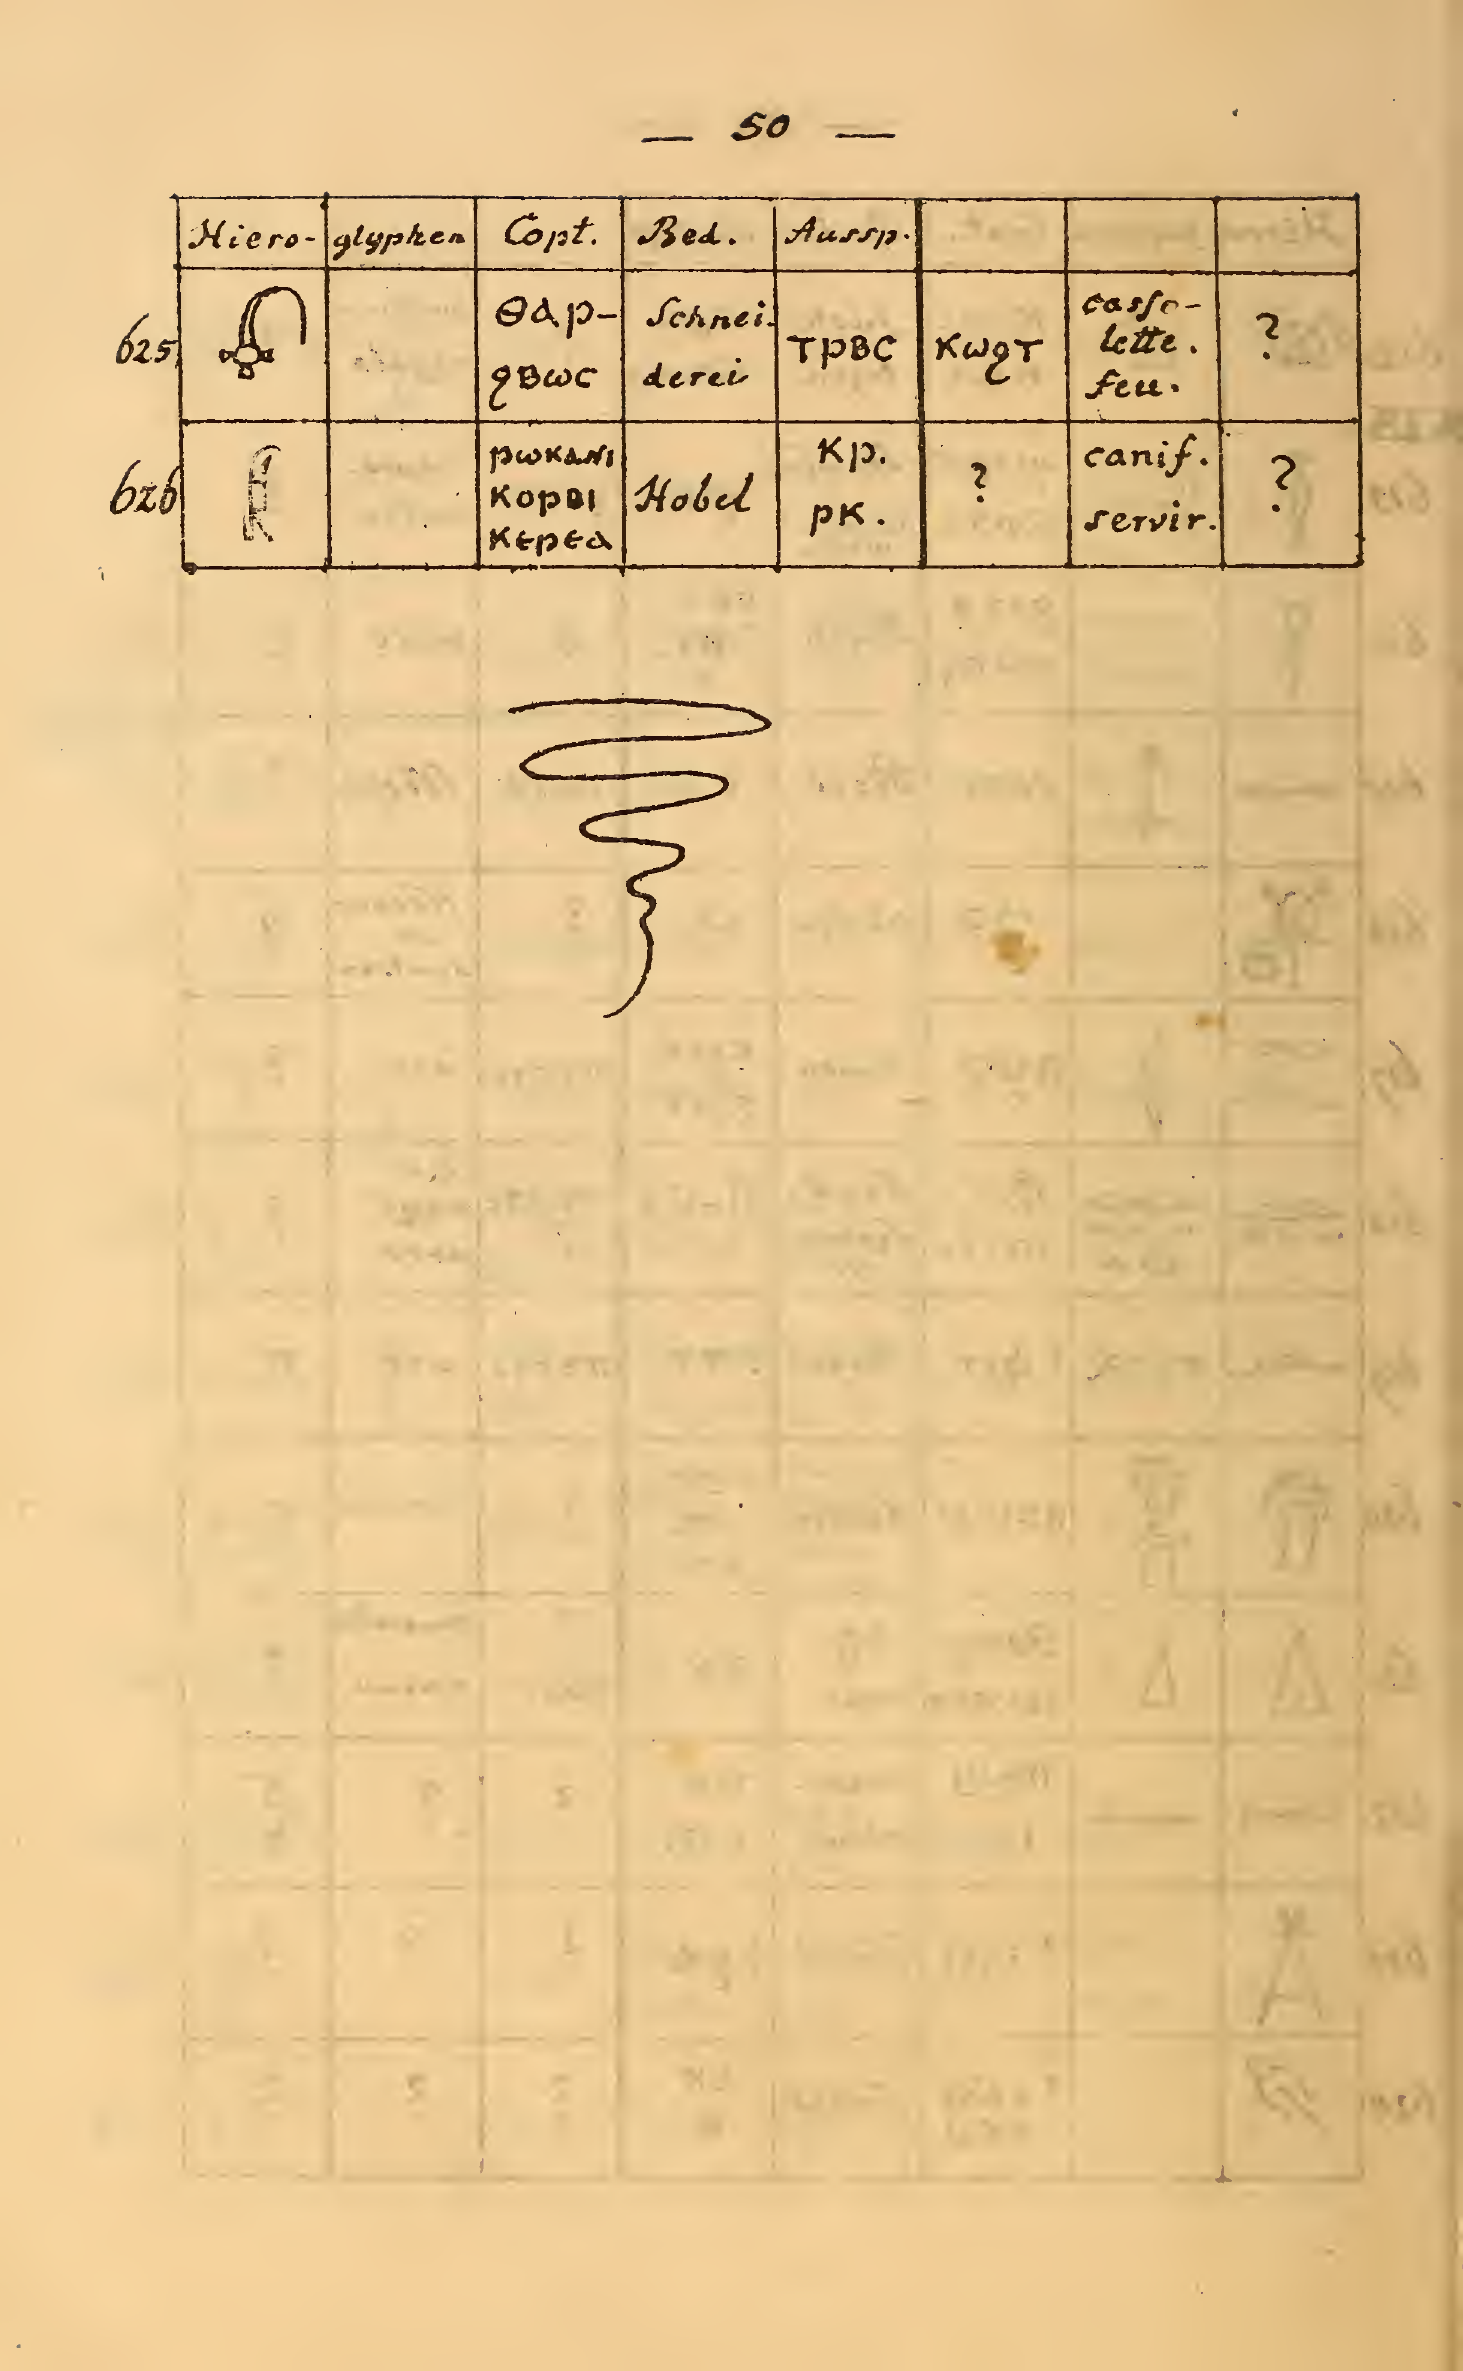 — 50 —
Hiero- glyphen Copt. Bed. Aussp.
625 ⲑⲁⲣ- ϩⲃⲱⲥ Schnei. derei ⲧⲣⲃⲥ ⲕⲱϩⲧ casso- lette. feu. ?
626 ⲣⲱⲕⲁⲛⲓ ⲕⲟⲣⲃⲓ ⲕⲉⲣⲉⲁ Hobel ⲕⲣ. ⲣⲕ. ? canif. servir. ?